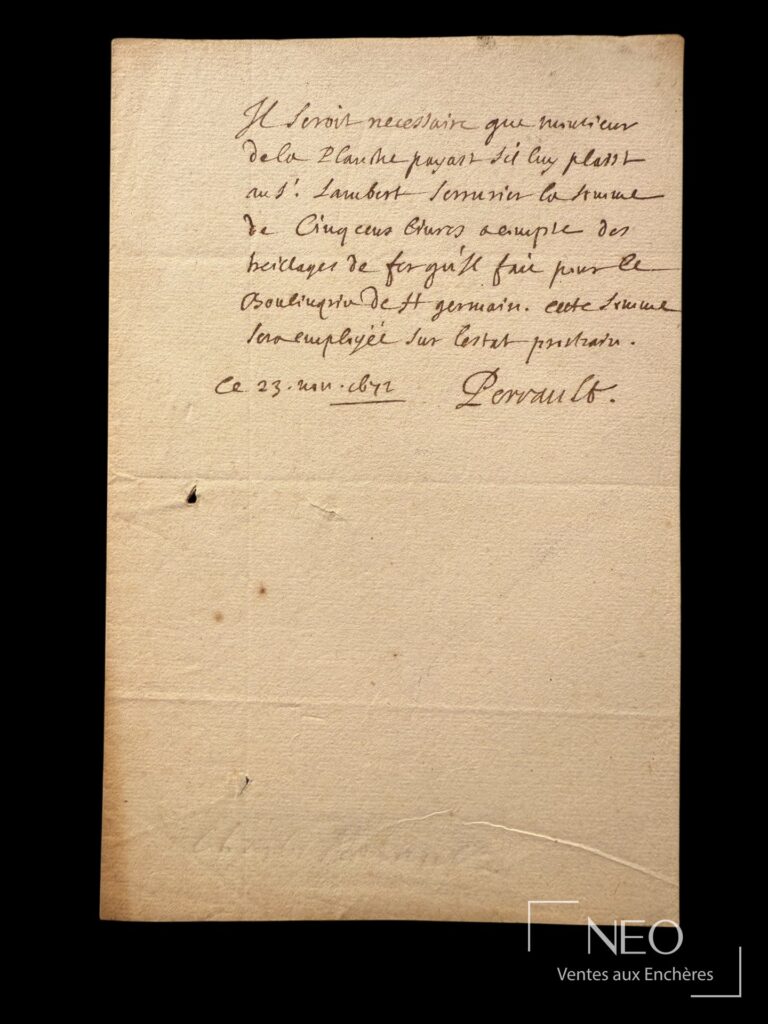 Il seroit necessaire que monsieur
de la Planche payast s'il luy plaist
au Sr. Lambert serrurier la somme
de Cinq cens livres acompte des
treillages de fer qu'Il fait pour le
Boulingrin de St germain. cette somme
sera employée sur l'estat prochain.
Ce 23. nov. 1672 Perrault.
NEO
Ventes aux Enchères